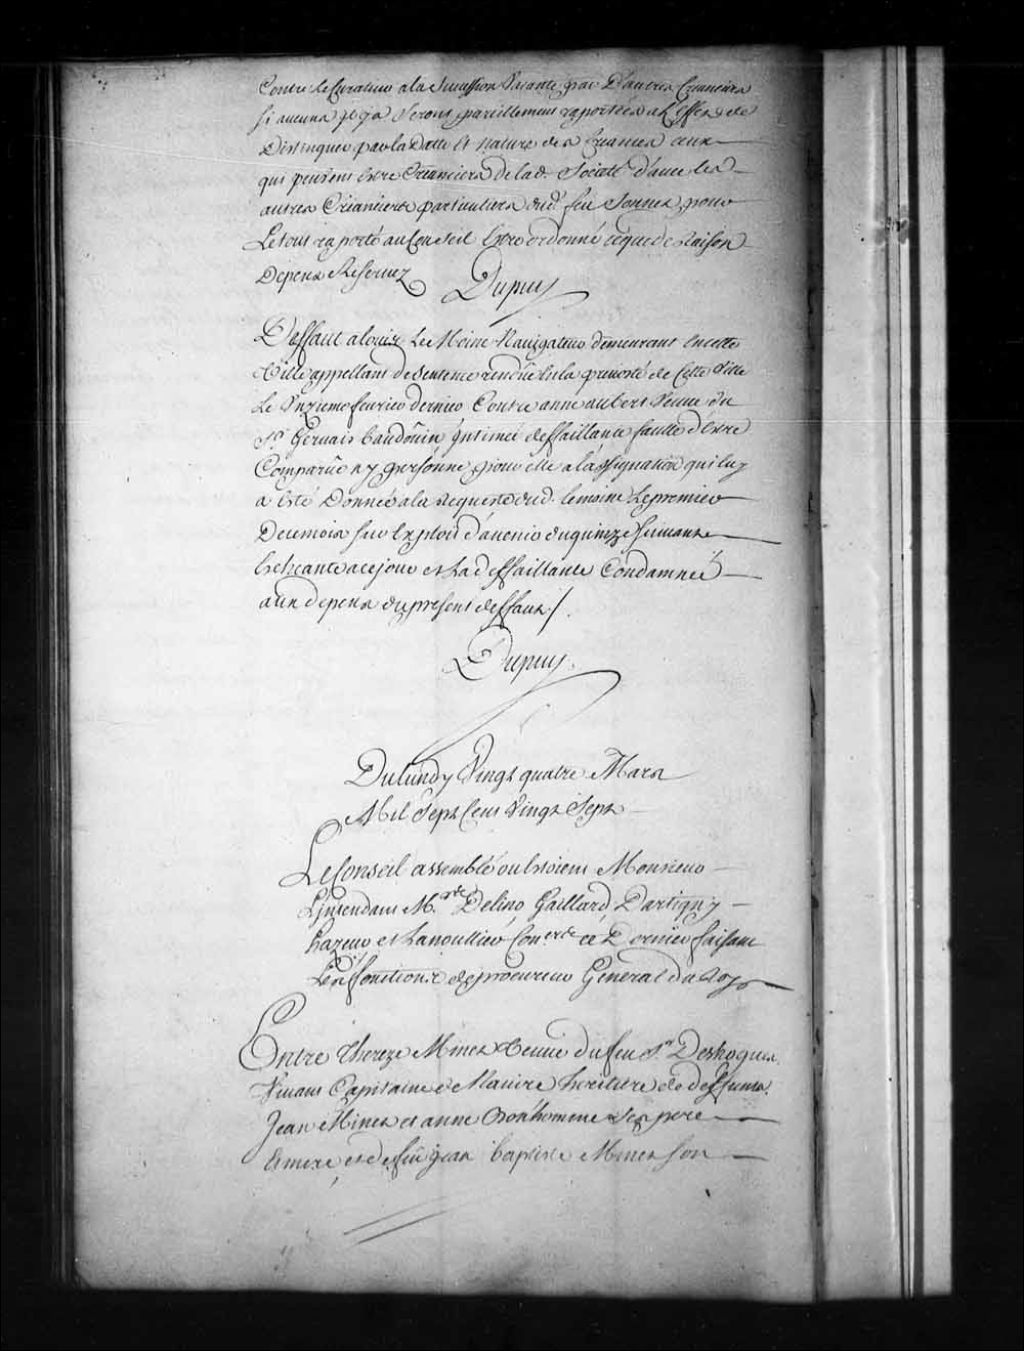 Contre le Curateur a la Sucession Vacante par D'autres Creanciers
si aucuns y a Seront pareillement raportées a l'Effet de
Distinguer par la Datte Et Nature des Creances ceux
qui peuvent Estre Creanciers de lad. Societé d'avec les
autres Créanciers particuliers dud. feu pour
Le tout raporté au Conseil Estre ordonné ce que de Raison
Depens Reservez
Dupuy
Deffaut a Louis Le Moine Navigateur demeurant En cette
Ville appellant de Sentence rendûe En la prevosté de Cette Ville
Le Unzieme fevrier dernier Contre anne aubert Veuve du
Sr. Gervais Baudoüin Intimée deffaillante faute d'Estre
Comparûe ny personne pour elle a l'assignation qui luy
a Esté Donnée a la requeste dud. Lemoine Le premier
De ce mois par Exploit d'huissier
Echeante a ce jour et la deffaillante Condamnée
aux depens du present deffaut /.
Dupuy
Du lundy Vingt quatre Mars
Mil Sept Cent Vingt Sept
Le Conseil assemblé ou Estoient Monsieur
L'Intendant M.rs Delino Gaillard Dartigny
hazeur et Lanoullier Con.ers ce Dernier faisant
Les fonctions de procureur General du Roy
Entre Therese Minet Veuve du feu Sr. Deshogues
Vivant Capitaine de Navire heritiere de deffunts
Jean Minet et anne Bonhomme Ses pere
Et mere et de feu jean baptiste Minet son